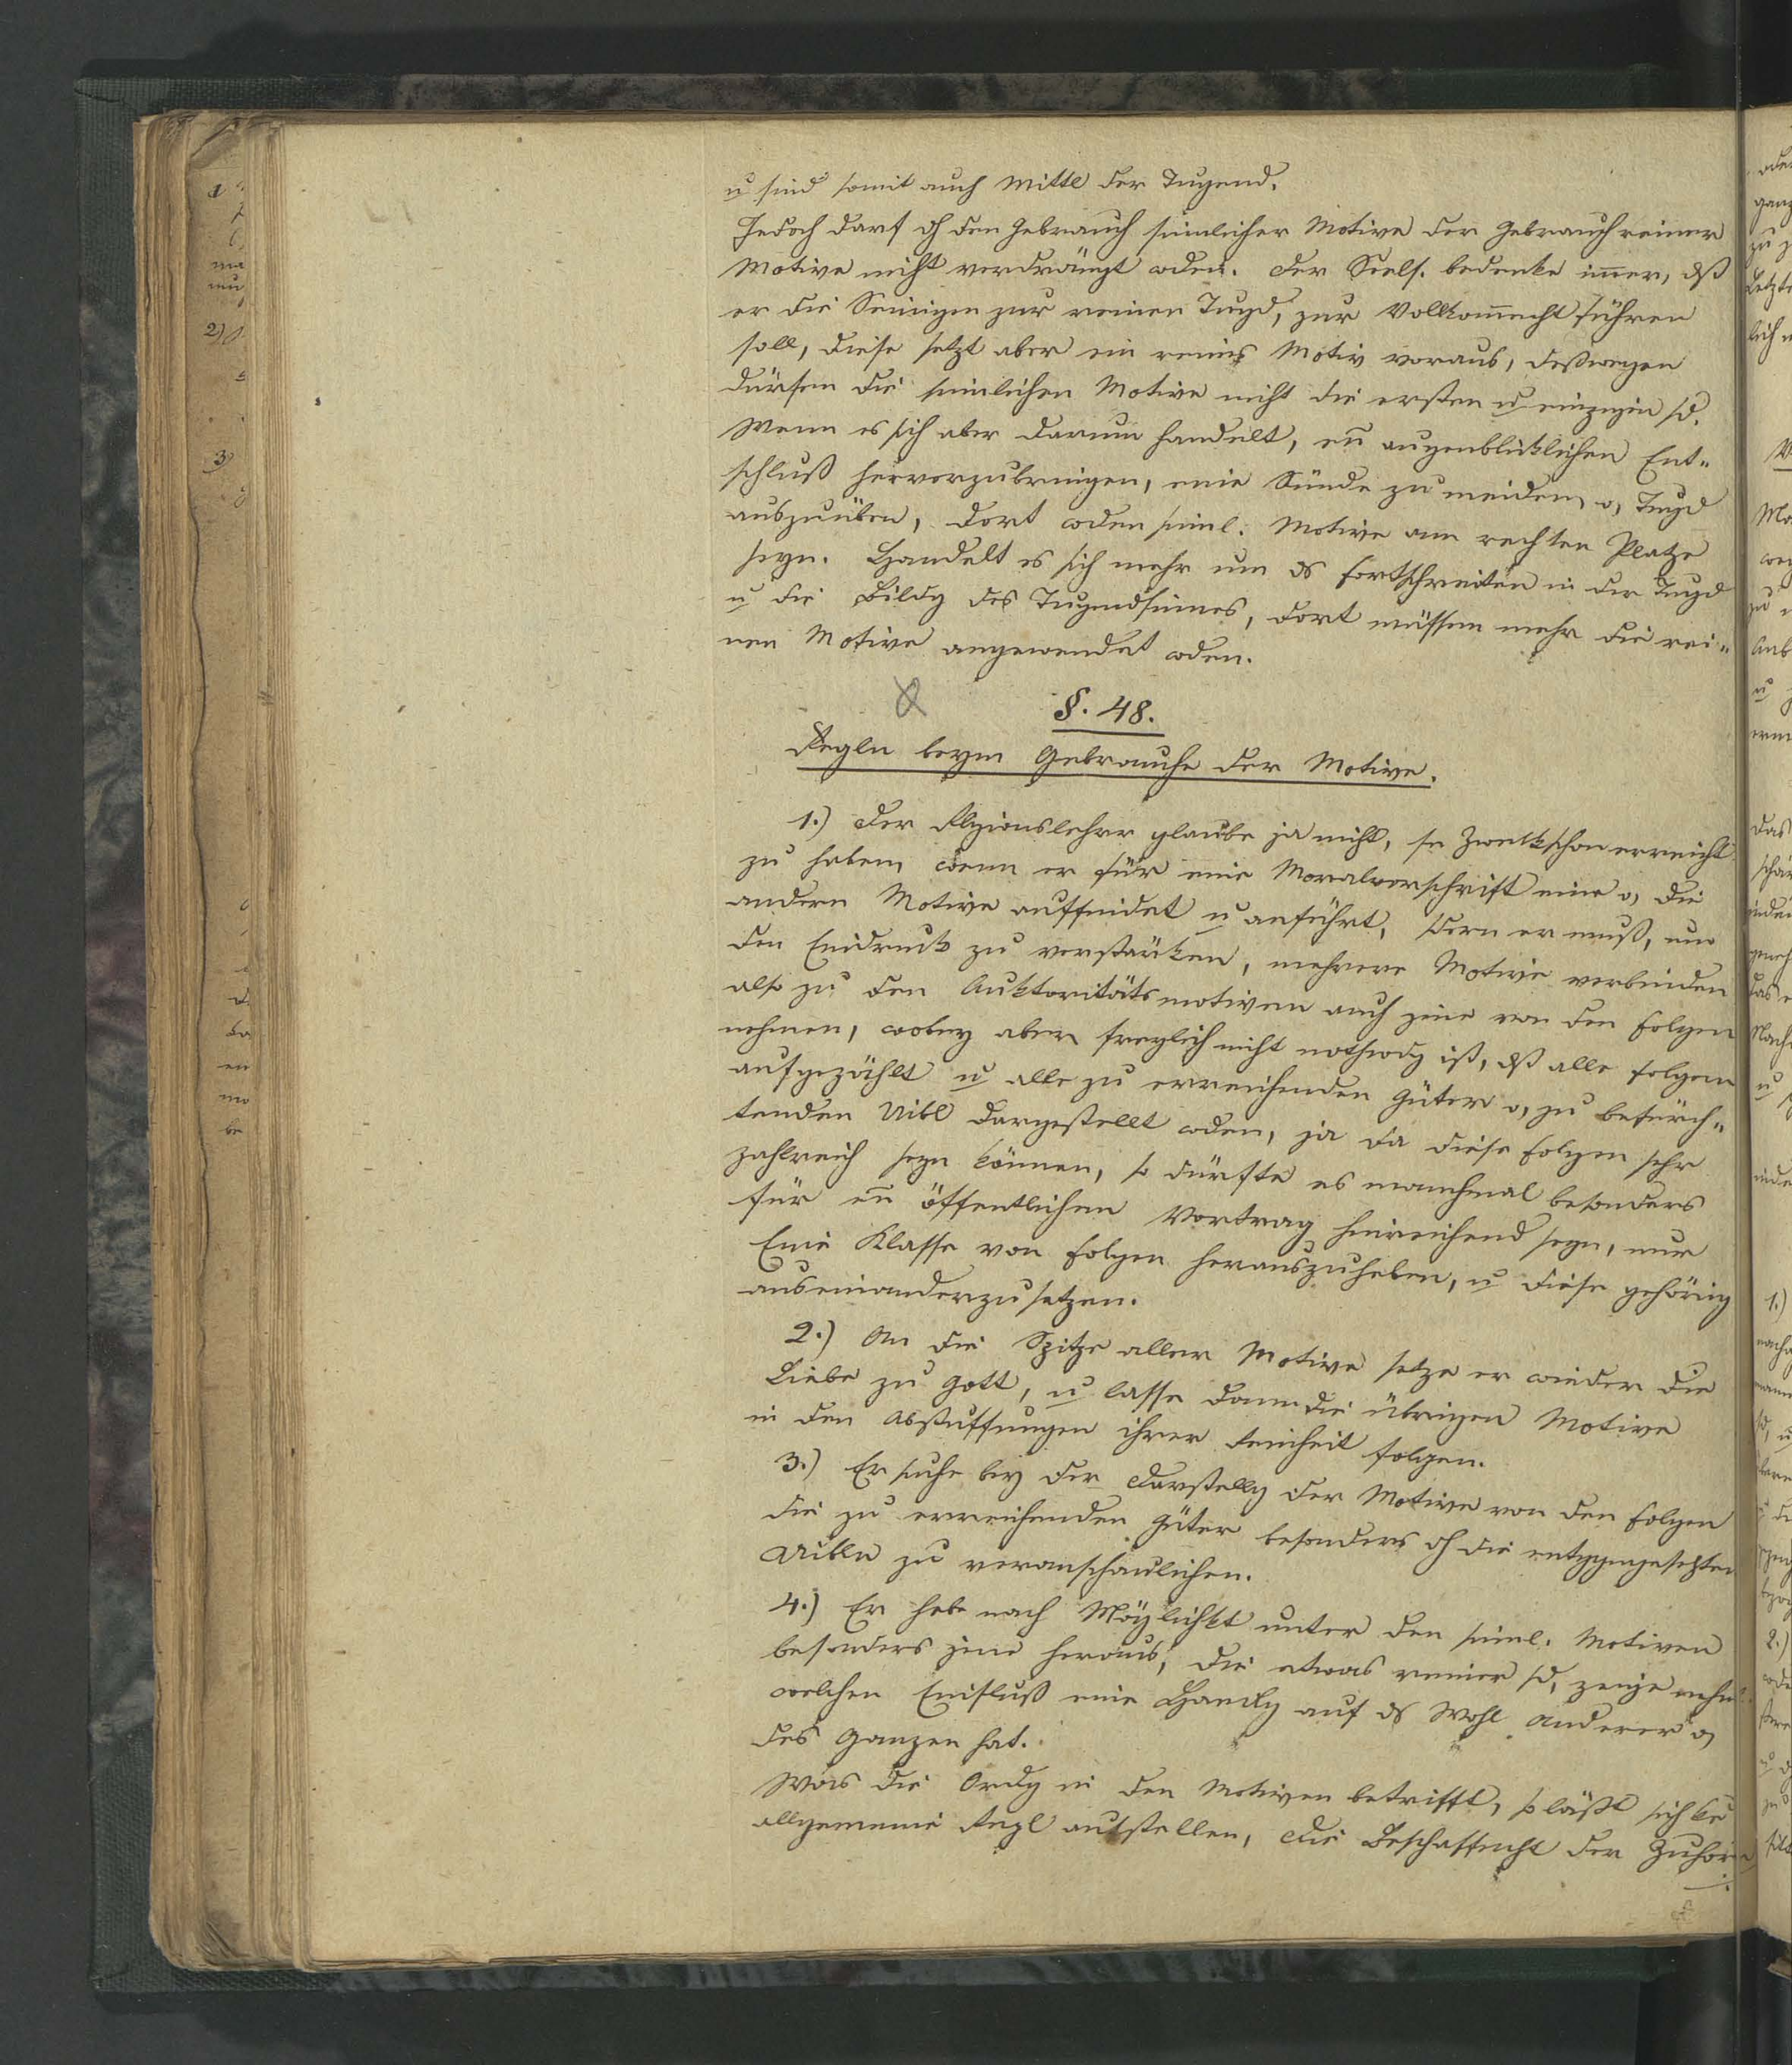 u sind somit auch Mittl der Tugend.
Jedoch darf dh den Gebrauch sinnlicher Motive der Gebrauch reiner
Motive nicht verdrängt wden. Der Seels. bedenke im̄er, dß
er die Seinigen zur reinen Tugd, zur Vollkom̄enht führen
soll, diese setzt aber ein reines Motiv voraus, deßwegen
dürfen die sinnlichen Motive nicht die ersten u einzigen sd.
Wenn es sich aber darum handelt, en̄ augenblicklichen Ent„
schluß hervorzubringen, eine Sünde zu meiden, o, Tugd
auszuüben, dort wden sinnl. Motive am rechten Platze
seyn. Handelt es sich mehr um ds Fortschreiten in der Tugd
u die Bildg des Tugendsinnes, dort müssen mehr die rei„
nen Motive angewendet wden.
§. 48.
Regln beym Gebrauche der Motive.
1.) Der Rlgionslehrer glaube ja nicht, sn Zweck schon erreicht
zu haben, wenn er für eine Moralvorschrift eine o, die
andern Motive auffindet u anführt, sdern er muß, um
den Eindruck zu verstärken, mehrere Motive verbinden
also zu den Auktoritätsmotiven auch jene von den Folgen
nehmen, wobey aber freylich nicht nothwdg ist, dß alle Folgen
aufgezählt u alle zu erreichenden Güter o, zu befürch„
tenden Uibl dargestellt wden, ja da diese Folgen sehr
zahlreich seyn können, so dürfte es manchmal besonders
für en̄ öffentlichen Vortrag hinreichend seyn, nur
Eine Klasse von Folgen herauszuheben, u diese gehörig
auseinanderzusetzen.
2.) An die Spitze aller Motive setze er wieder die
Liebe zu Gott, u lasse dann die übrigen Motive
in den Abstuffungen ihrer Reinheit folgen.
3.) Er suche bey der Darstellg der Motive von den Folgen
die zu erreichenden Güter besonders dh die entggengesetzten
Uibln zu veranschaulichen.
4.) Er hebe nach Möglichkt unter den sinnl. Motiven
besonders jene heraus, die etwas reiner sd, zeige
welchen Einfluß eine Handlg auf ds Wohl Anderer o,
des Ganzen hat.
Was die Ordg in den Motiven betrifft, so läßt sich ke
allgemeine Regl aufstellen, die Beschaffenht der Zuhörer